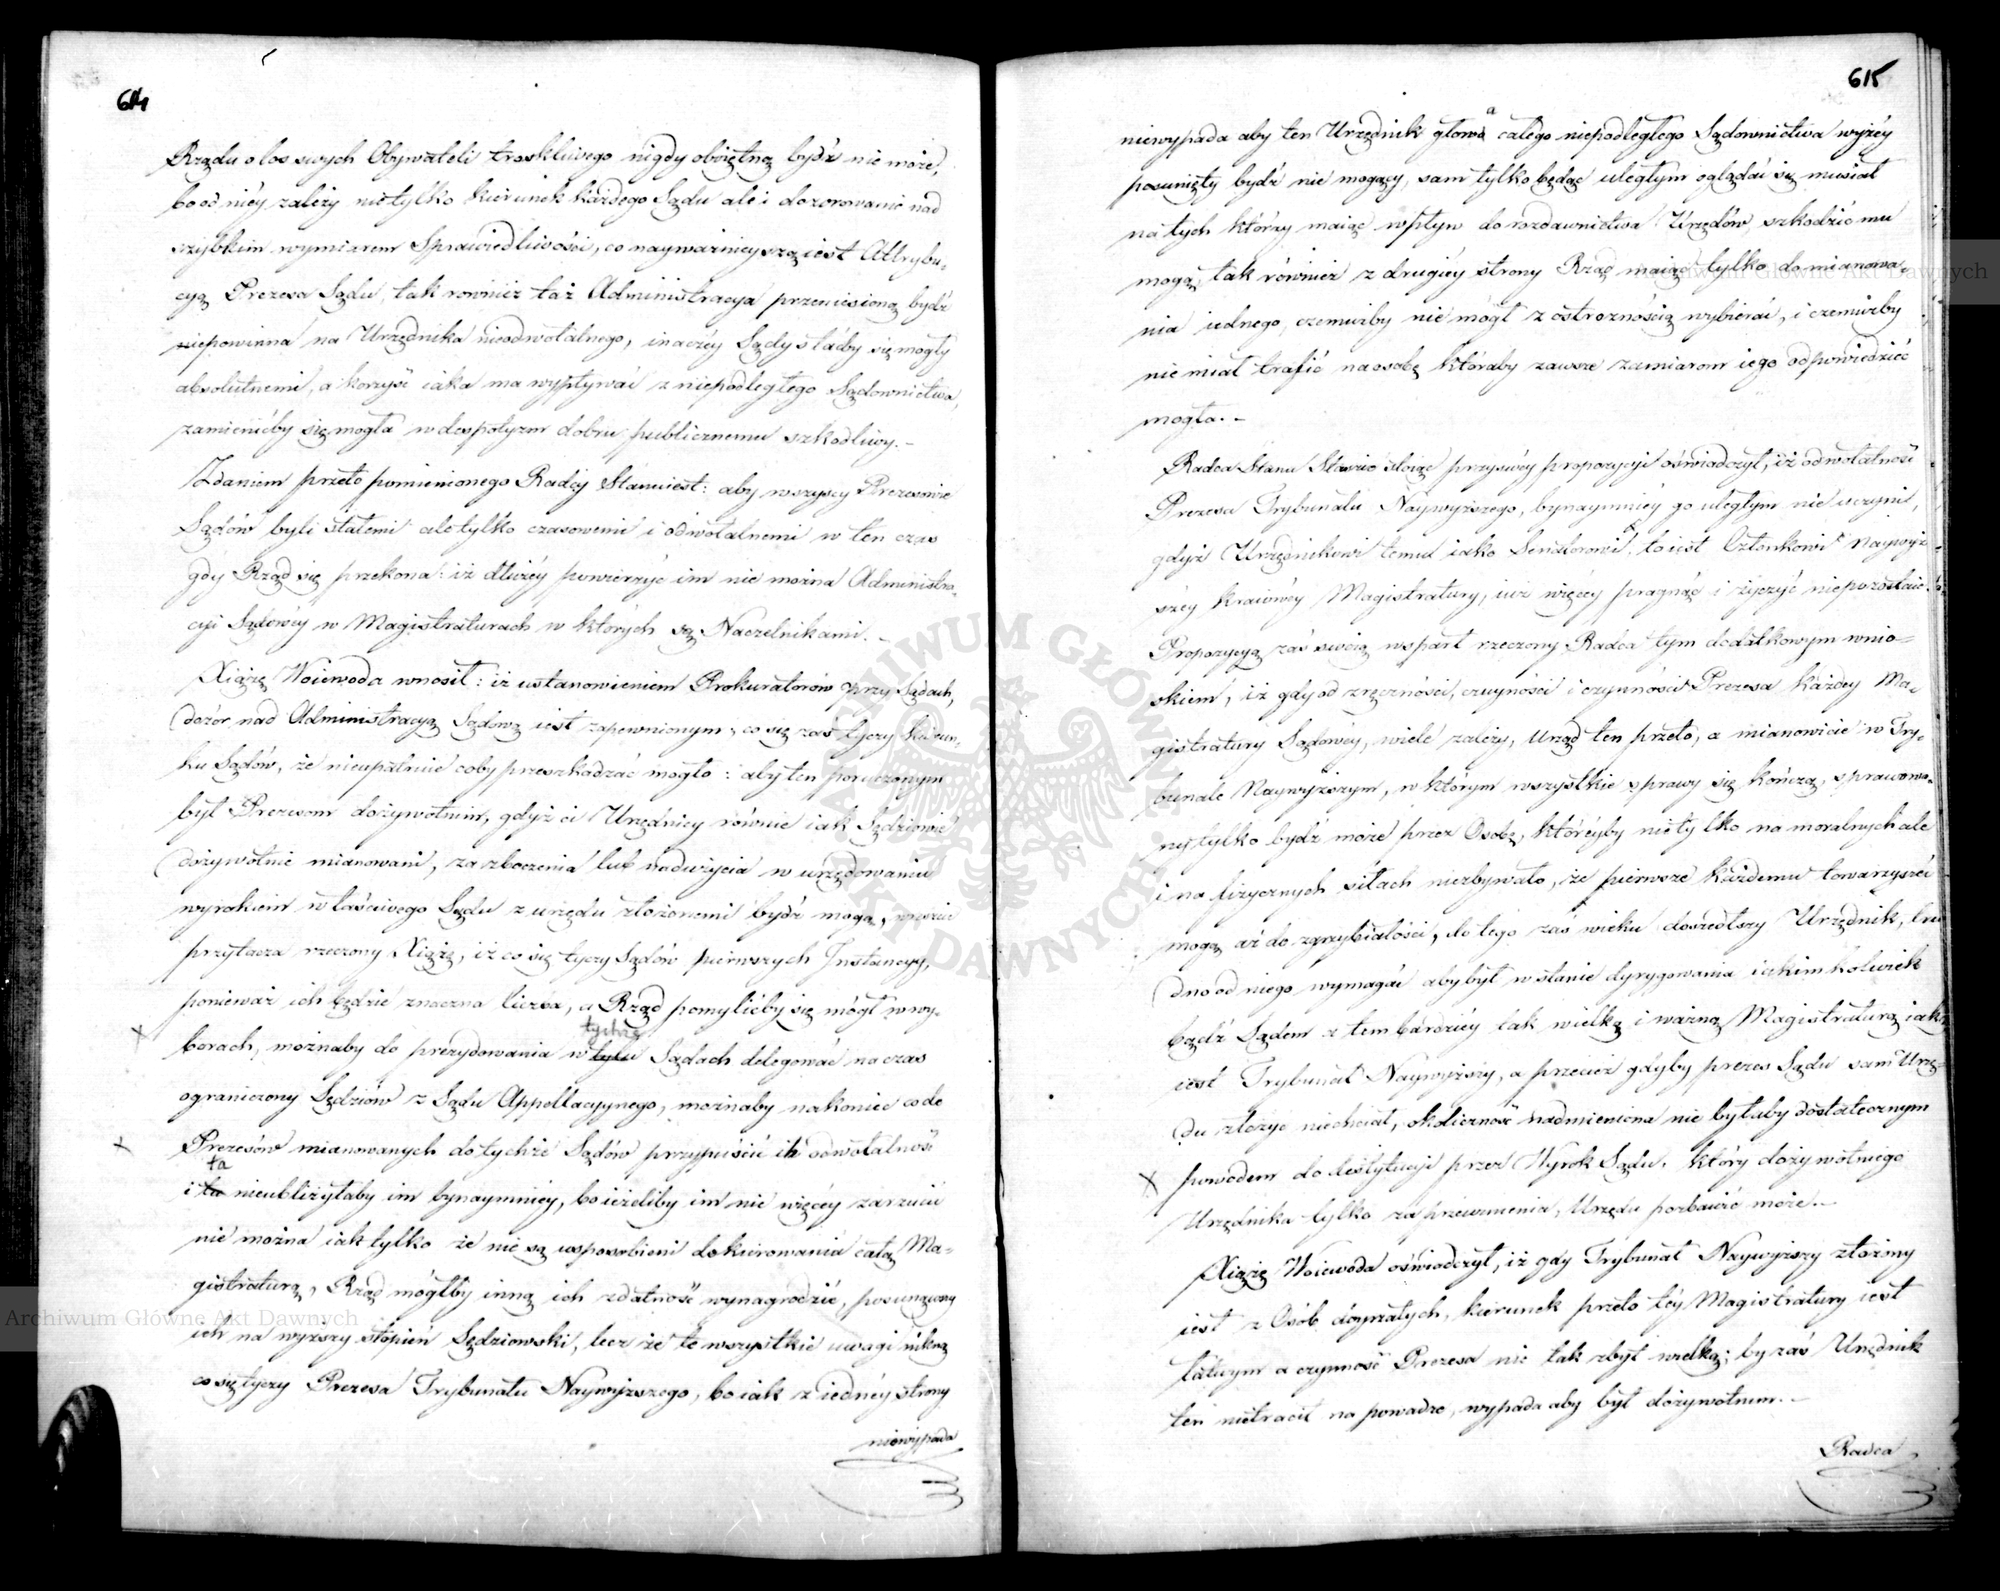 614
Rządu o los swych Obywateli troskliwego nigdy obojętną bydź nie może,
bo od niéy zależy nietylko kierunek każdego Sądu ale i dozorowanie nad
szybkim wymiarem Sprawiedliwości, co nayważnieyszą iest Attrybu-
cyą Prezesa Sądu, tak rownież taż Administracya przeniesioną bydź
niepowinna na Urzędnika nieodwołalnego, inaczéy Sądy stáćby się mogły
absolutnemi, a korzyść iaka ma wypływać z niepodległego Sądownictwa,
zamienićby się mogła w despotyzm dobru publicznemu szkodliwy. –
Zdaniem przeto pomienionego Radcy Stanu iest: aby wszyscy Prezesowie
Sądów byli stałemi ale tylko czasowemi i odwołalnemi w ten czas
gdy Rząd się przekona: iż dłużéy powierzyć im nie można Administra-
cyi Sądowéy w Magistraturach w których są Naczelnikami. –
Xiążę Woiewoda wnosił: iż ustanowieniem Prokuratorów przy Sądach,
dozór nad Administracyą Sądową iest zapewnionym, co się zaś tyczy kierun-
ku Sądów, że nieupatruie coby przeszkadzać mogło: aby ten poruczonym
był Prezesom dożywotnim, gdyż ci Urzędnicy równie iak Sędziowie
dożywotnie mianowani, za zboczenia lub nadużycia w urzędowaniu
wyrokiem właściwego Sądu z urzędu złożonemi bydź mogą,
przytacza rzeczony Xiążę, iż co się tyczy Sądów pierwszych Instancyy,
ponieważ ich będzie znaczna liczba, a Rząd pomylićby się mógł w wy-
tychże
borach, możnaby do prezydowania w tylu Sądach delegować na czas
ograniczony Sędziów z Sądu Appellacyynego, możnaby nakoniec co do
Prezesów mianowanych do tychże Sądów przypuścić ich odwołalność
ta
i ta nieubliżyłaby im bynaymniéy, bo ieżeliby im nie więcéy zarzucić
nie można iak tylko że nie są usposobieni do kierowania całą Ma-
gistraturą, Rząd mógłby inną ich zdatność wynagrodzić, posunąwszy
ich na wyższy stopień Sędziowski, lecz że te wszystkie uwagi nikną
co się tyczy Prezesa Trybunału Naywyższego, bo iak z iednéy strony
niewypada
615
a
niewypada aby ten Urzędnik głowa całego niepodległego Sądownictwa wyżéy
posunięty bydź nie mogący, sam tylko będąc uległym oglądać się musiał
na tych którzy maiąc wpływ do rozdawnictwa Urzędów, szkodzić mu
mogą, tak również z drugiéy strony Rząd maiąc tylko do mianowa-
nia iednego, czemużby nie mógł z ostrożnością wybierać, i czemużby
nie miał trafić na osobę któraby zawsze zamiarom iego odpowiedzieć
mogła. –
Radca Stanu Stawic stoiąc przy swéy propozycyi oświadczył, iż odwołalność
Prezesa Trybunału Naywyższego, bynaymniéy go uległym nie uczyni,
gdyż Urzędnikowi temu iako Senatorowi, to iest Członkowi Naywyż-
széy kraiowéy Magistratury, iuż więcéy pragnąć i życzyć niepozostaie.
Propozycyą zaś swoią wsparł rzeczony Radca tym dodatkowym wnio-
skiem, iż gdy od zręczności, czuyności i czynności Prezesa każdey Ma-
gistratury Sądowéy, wiele zależy, Urząd ten przeto, a mianowicie w Try-
bunale Naywyższym, w którym wszystkie sprawy się kończą, sprawowa-
ny tylko bydź może przez Osobę, któréyby nietylko na moralnych ale
i na fizycznych siłach niezbywało, że pierwsze każdemu towarzyszéć
mogą aż do zgrzybiałości, do tego zaś wieku doszedłszy Urzędnik, tru
dno od niego wymagać aby był w stanie dyrygowania iakimkolwiek
bądź Sądem a tem bardziéy tak wielką i ważną Magistraturą iaką
iest Trybunał Naywyższy, a przecież gdyby prezes Sądu sam Urzę-
du złożyć niechciał, okoliczność nadmieniona nie byłaby dostatecznym
powodem do destytucyi przez Wyrok Sądu, który dożywotniego
Urzędnika tylko za przewinienia, Urzędu pozbawić może. –
Xiążę Woiewoda oświadczył, iż gdy Trybunał Naywyższy złożony
iest z Osób doyrzałych, kierunek przeto téy Magistratury iest
łatwym a czynność Prezesa nie tak zbyt wielką; by zaś Urzędnik
ten nietracił na powadze, wypada aby był dożywotnim. –
Radca
Archiwum Główne Akt Dawnych
Archiwum Główne Akt Dawnych
ARCHIWUM GŁÓWNE AKT DAWNYCH